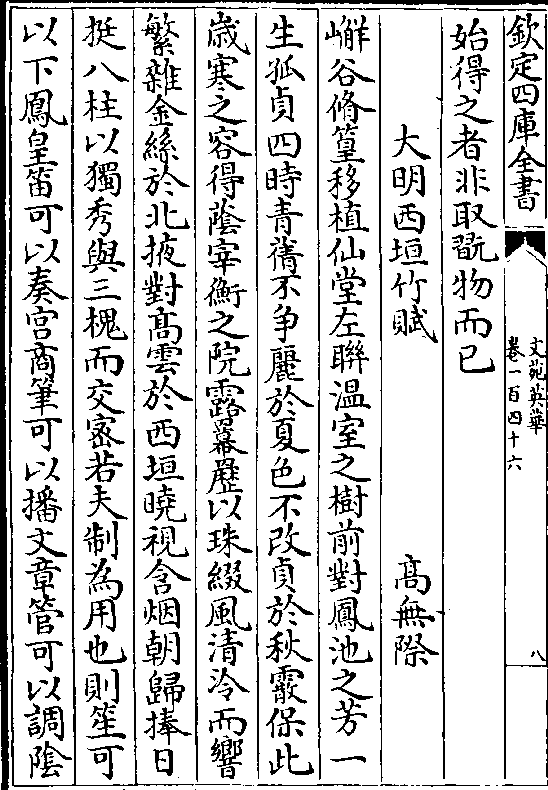 欽定四庫全書
文苑英華
卷一百四十六
八
始得之者非取翫物而已
大明西垣竹賦 髙無際
嶰谷脩篁移植仙堂左聮温室之樹前對鳳池之芳一
生孤貞四時青蒨不争麗於夏色不改貞於秋霰保此
歳寒之容得蔭宰衡之院露羃歴以珠綴風清泠而響
繁雜金絲於北掖對髙雲於西垣曉視含烟朝歸捧日
挺八柱以獨秀與三槐而交宻若夫制為用也則笙可
以下鳳皇笛可以奏宫商筆可以播文章管可以調陰